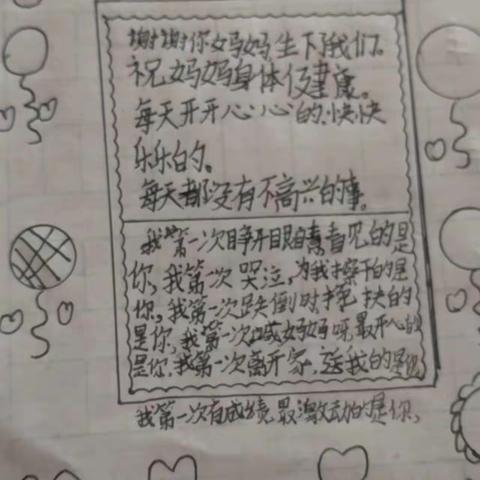 谢谢你妈妈生下我们。
祝妈妈身体健康。
每天开开心心的.快快
乐乐的。
每天都没有不高兴的事。
我第一次睁开眼睛看见的是
你,我第一次哭泣,为我擦干的是
你,我第一次跌倒时搀扶的
是你,我第一次喊妈妈时呀最开心的
是你,我第一次离开家,送我的是你
我第一次有成绩,最激动的是你,